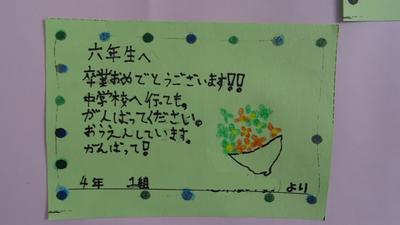 六年生へ
卒業おめでとうございます!!
中学校へ行っても。
がんばってください。
おうえんしています。
がんばって!
4年 1組 より